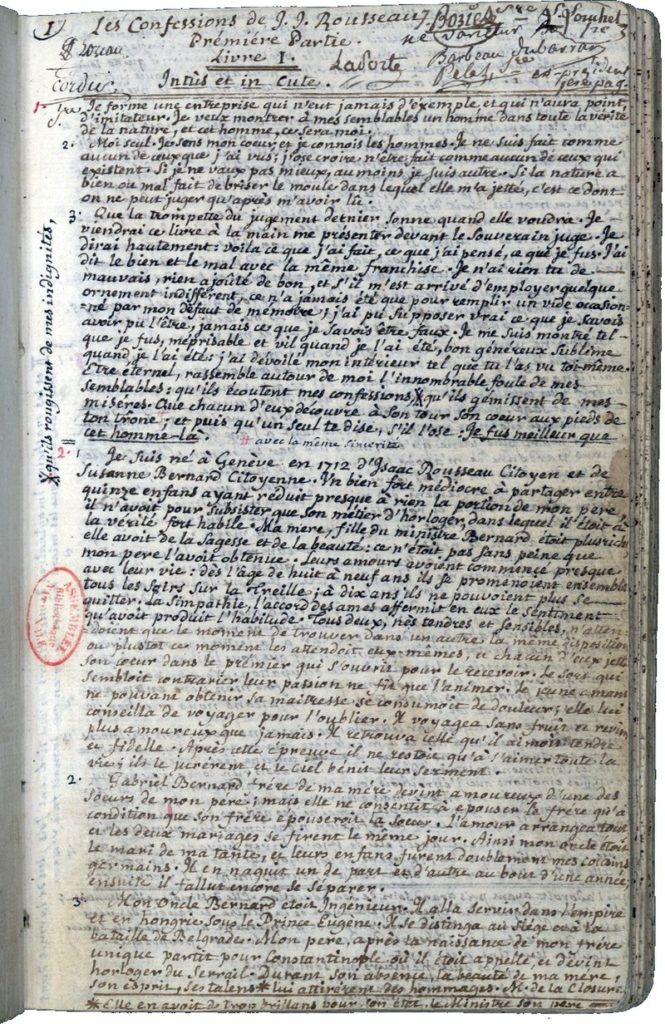 1) Les Confessions de J. J. Rousseau.
Prémiére Partie.
Livre I.
Intùs et in Cute.
LaPorte
Barbeau Dubarran
1. Je forme une entreprise qui n'eut jamais d'exemple, et qui n'aura point
d'imitateur. Je veux montrer à mes semblables un homme dans toute la vérité
de la nature, et cet homme, ce sera moi.
2. Moi seul. Je sens mon coeur, et je connois les hommes. Je ne suis fait comme
aucun de ceux que j'ai vus; j'ose croire n'être fait comme aucun de ceux qui
existent. Si je ne vaux pas mieux, au moins je suis autre. Si la nature a
bien ou mal fait de briser le moule dans lequel elle m'a jetté, c'est ce dont
on ne peut juger qu'après m'avoir lû.
3. Que la trompette du jugement dernier sonne quand elle voudra. Je
viendrai ce livre à la main me présenter devant le Souverain juge. Je
dirai hautement: voila ce que j'ai fait, ce que j'ai pensé, ce que je fus. J'ai
dit le bien et le mal avec la même franchise. Je n'ai rien tu de
mauvais, rien ajoûté de bon, et s'il m'est arrivé d'employer quelque
ornement indifférent, ce n'a jamais été que pour remplir un vide ocasion-
né par mon défaut de mémoire; j'ai pu supposer vrai ce que je savois
avoir pu l'être, jamais ce que je savois être faux. Je me suis montré tel
que je fus, méprisable et vil quand je l'ai été, bon, généreux, sublime
quand je l'ai été: j'ai dévoilé mon intérieur tel que tu l'as vu toi-même.
Etre éternel, rassemble autour de moi l'innombrable foule de mes
semblables: qu'ils écoutent mes confessions, X qu'ils gémissent de mes
miséres. Que chacun d'eux découvre à son tour son coeur aux pieds de
ton trone #; et puis qu'un seul te dise, s'il l'ose: Je fus meilleur que
cet homme-là.
# avec la même sincérité
X qu'ils rougissent de mes indignités,
2. 1 Je suis né à Genève en 1712 d'Isaac Rousseau Citoyen et de
Susanne Bernard Citoyenne. Un bien fort médiocre à partager entre
quinze enfans ayant réduit presque à rien la portion de mon pere,
il n'avoit pour subsister que son métier d'horloger, dans lequel il étoit à
la vérité fort habile. Ma mere, fille du ministre Bernard étoit plus riche
elle avoit de la sagesse et de la beauté: ce n'étoit pas sans peine que
mon pere l'avoit obtenue. Leurs amours avoient commencé presque
avec leur vie: dès l'âge de huit à neuf ans ils se promenoient ensemble
tous les soirs sur la Treille; à dix ans ils ne pouvoient plus se
quitter. La simpathie, l'accord des ames affermit en eux le sentiment
qu'avoit produit l'habitude. Tous deux, nés tendres et sensibles, n'atten-
doient que le moment de trouver dans un autre la même disposition
ou plustot ce moment les attendoit eux-mêmes, et chacun d'eux jetta
son coeur dans le prémier qui s'ouvrit pour le recevoir. Le sort qui
sembloit contrarier leur passion ne fit que l'animer. Le jeune amant
ne pouvant obtenir sa maitresse se consumoit de douleur; elle lui
conseilla de voyager pour l'oublier. Il voyagea sans fruit et revint
plus amoureux que jamais. Il retrouva celle qu'il aimoit tendre
et fidelle. Après cette épreuve il ne restoit qu'à s'aimer toute la
vie; ils le jurérent et le Ciel bénit leur serment.
2. Gabriel Bernard frére de ma mére devint amoureux d'une des
soeurs de mon pere; mais elle ne consentit à épouser le frére qu'à
condition que son frére épouseroit la soeur. L'amour arrangea tout
et les deux mariages se firent le même jour. Ainsi mon oncle étoit
le mari de ma tante, et leurs enfans furent doublement mes cousins
germains. Il en naquit un de part et d'autre au bout d'une année,
ensuite il fallut encore se séparer.
3. Mon Oncle Bernard étoit Ingénieur: Il alla servir dans l'empire
et en hongrie sous le Prince Eugène. Il se distingua au siége et à la
bataille de Belgrade. Mon pere, après la naissance de mon frére
unique partit pour Constantinople où il étoit appellé et devint
horloger du Serrail. Durant son absence, la beauté de ma mére,
son esprit, ses talens * lui attirérent des hommages. M. de la Closure
* Elle en avoit de trop brillans pour son état, le Ministre son pere